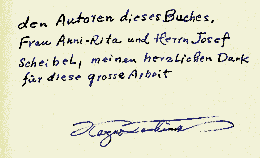 den Autoren dieses Buches,
Frau Anni-Rita und Herrn Josef
Scheibel, meinen herzlichen Dank
für diese grosse Arbeit